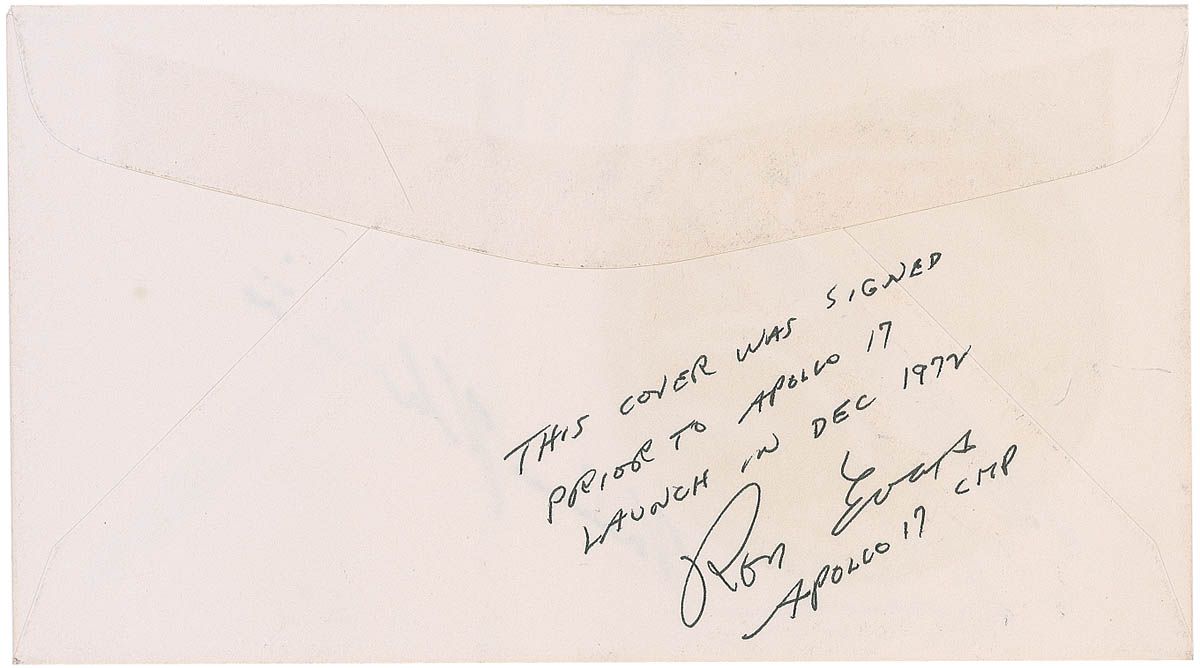 THIS COVER WAS SIGNED
PRIOR TO APOLLO 17
LAUNCH IN DEC 1972
Ron Evans
APOLLO 17 CMP